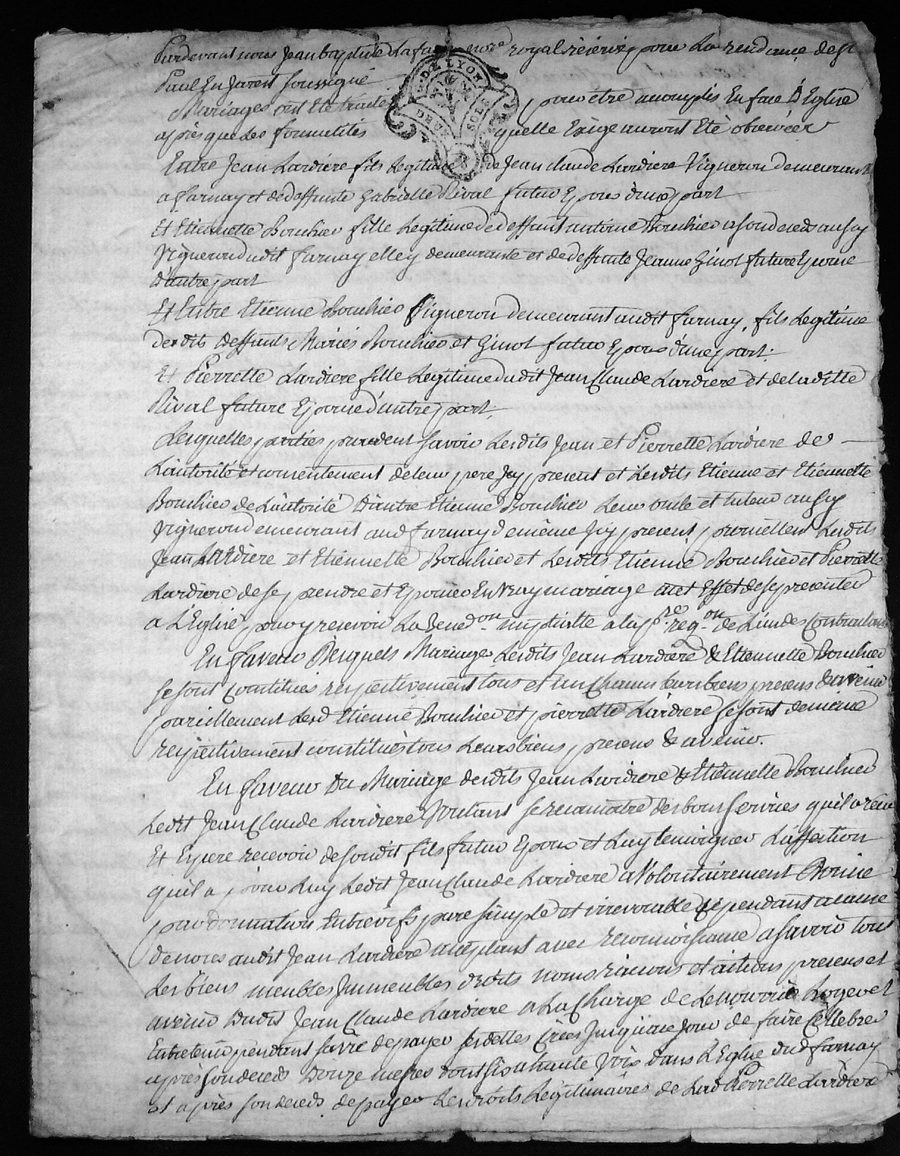 Pardevant nous Jean baptiste Lafa notre royal réservé pour La residance de St
Paul En Jarest soussigné
DE LYON
GENER
SOLS
Mariages ont Eté traités pour être accomplis En face D'Eglise
après que les formalités quelle Exige auront Eté observées
Entre Jean Lardiere fils Legitime de Jean claude Lardiere Vigneron demeurant
a farnay et de deffunte Gabrielle Rival futur Epoux d'une part
Et Etiennette Bouchier fille Legitime de deffunt antoine Bouchier a son deceds aussy
Vigneron dudit farnay elley demeurante et de deffunte Jeanne Ginot future Epouse
d'autre part
Et Entre Etienne Bouchier Vigneron demeurant audit farnay, fils Legitime
desdits deffunts Mariés Bouchier et Ginot futur Epoux d'une part.
Et Pierrette Lardiere fille Legitime dudit Jean Claude Lardiere et de laditte
Rival future Epouse d'autre part
Lesquelles parties procedent savoir Lesdits Jean et Pierrette Lardiere de
L'autorité et consentement de leur pere Icy present et Lesdits Etienne et Etiennette
Bouchier de L'autorité D'autre Etienne Bouchier Leur oncle et tuteur aussy
Vigneron demeurant aud farnay de même Icy present, promettent Lesdits
Jean Lardiere et Etiennette Bouchier et Lesdits Etienne Bouchier et Pierrette
Lardiere de se prendre et Epouser En vray mariage a cet Effet de se presenter
a L'Eglise pour y recevoir La Bene.on nuptialle a la pre. req.on de L'un des Contractans
En faveur Desquels Mariages Lesdits Jean Lardiere & Etiennette Bouchier
se sont constitués respectivement tous et un Chacun leurs biens presens & avenir
pareillement Lesd Etienne Bouchier et pierrette Lardiere se sont de même
respectivement constitués tous Leurs biens presens & avenir.
En faveur Du Mariage desdits Jean Lardiere & Etiennette Bouchier
Ledit Jean Claude Lardiere Voulant se reconnoitre des bons services quil a reçu
Et Espere recevoir de son dit fils futur Epoux et Luy temoigner L'affection
quil a pour Luy Ledit Jean Claude Lardiere a Volontairement Donné
par donnation Entrevifs pure simple et irrevocable Cependant a cause
de noces audit Jean Lardiere acceptant avec reconnoissance a savoir tous
Les biens meubles Immeubles droits noms raisons et actions presens et
avenir Dudit Jean Claude Lardiere a La Charge de Le nourrir Loger et
Entretenir pendant sa vie de payer ses dettes Crées Jusqu'a ce Jour de faire Cellebrer
après son deceds Douze messes dont six a haute Voix dans L'Eglise dud farnay
Et après son deceds de payer Les droits Legitimaires de Lad Pierrette Lardiere